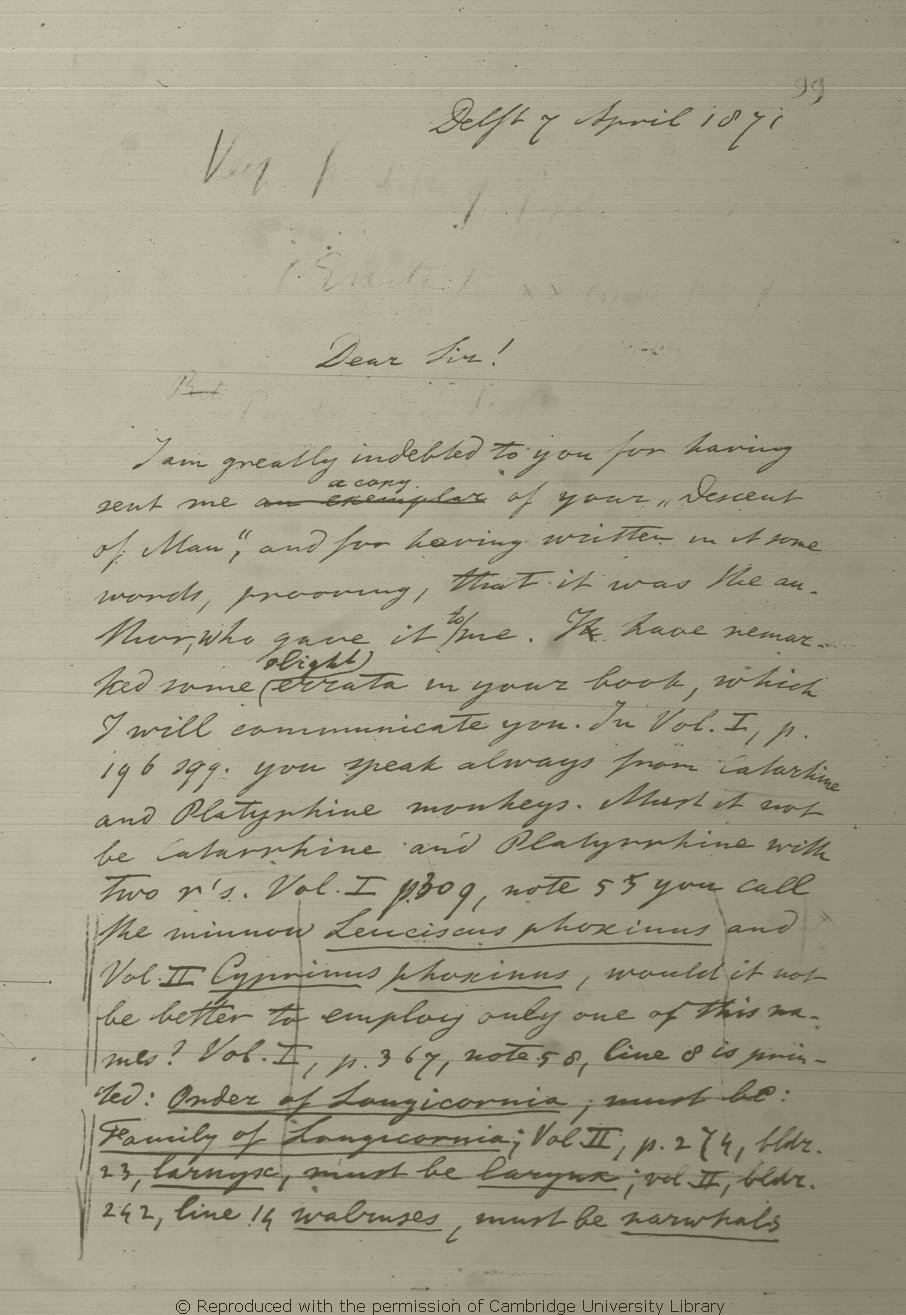 99
Delft 7 April 1871
Dear Sir!
I am greatly indebted to you for having
sent me an exemplar a copy of your „Descent
of Man“, and for having written in it some
words, prooving, that it was the au-
thor, who gave it to me. I have remar-
ked some (slight) errata in your book, which
I will communicate you. In Vol. I, p.
196 sqq. you speak always from Catarhine
and Platyrhine monkeys. Must it not
be Catarrhine and Platyrrhine with
two r's. Vol. I p. 309, note 55 you call
the minnow Leuciscus phoxinus and
Vol. II Cyprinus phoxinus, would it not
be better to employ only one of this na-
mes? Vol. I, p. 367, note 58, line 8 is prin-
ted: Order of Longicornia; must be:
Family of Longicornia; Vol. II, p. 274, bldr.
23, larnyx, must be larynx; vol. II, bldr.
242, line 14 walruses, must be narwhals
© Reproduced with the permission of Cambridge University Library